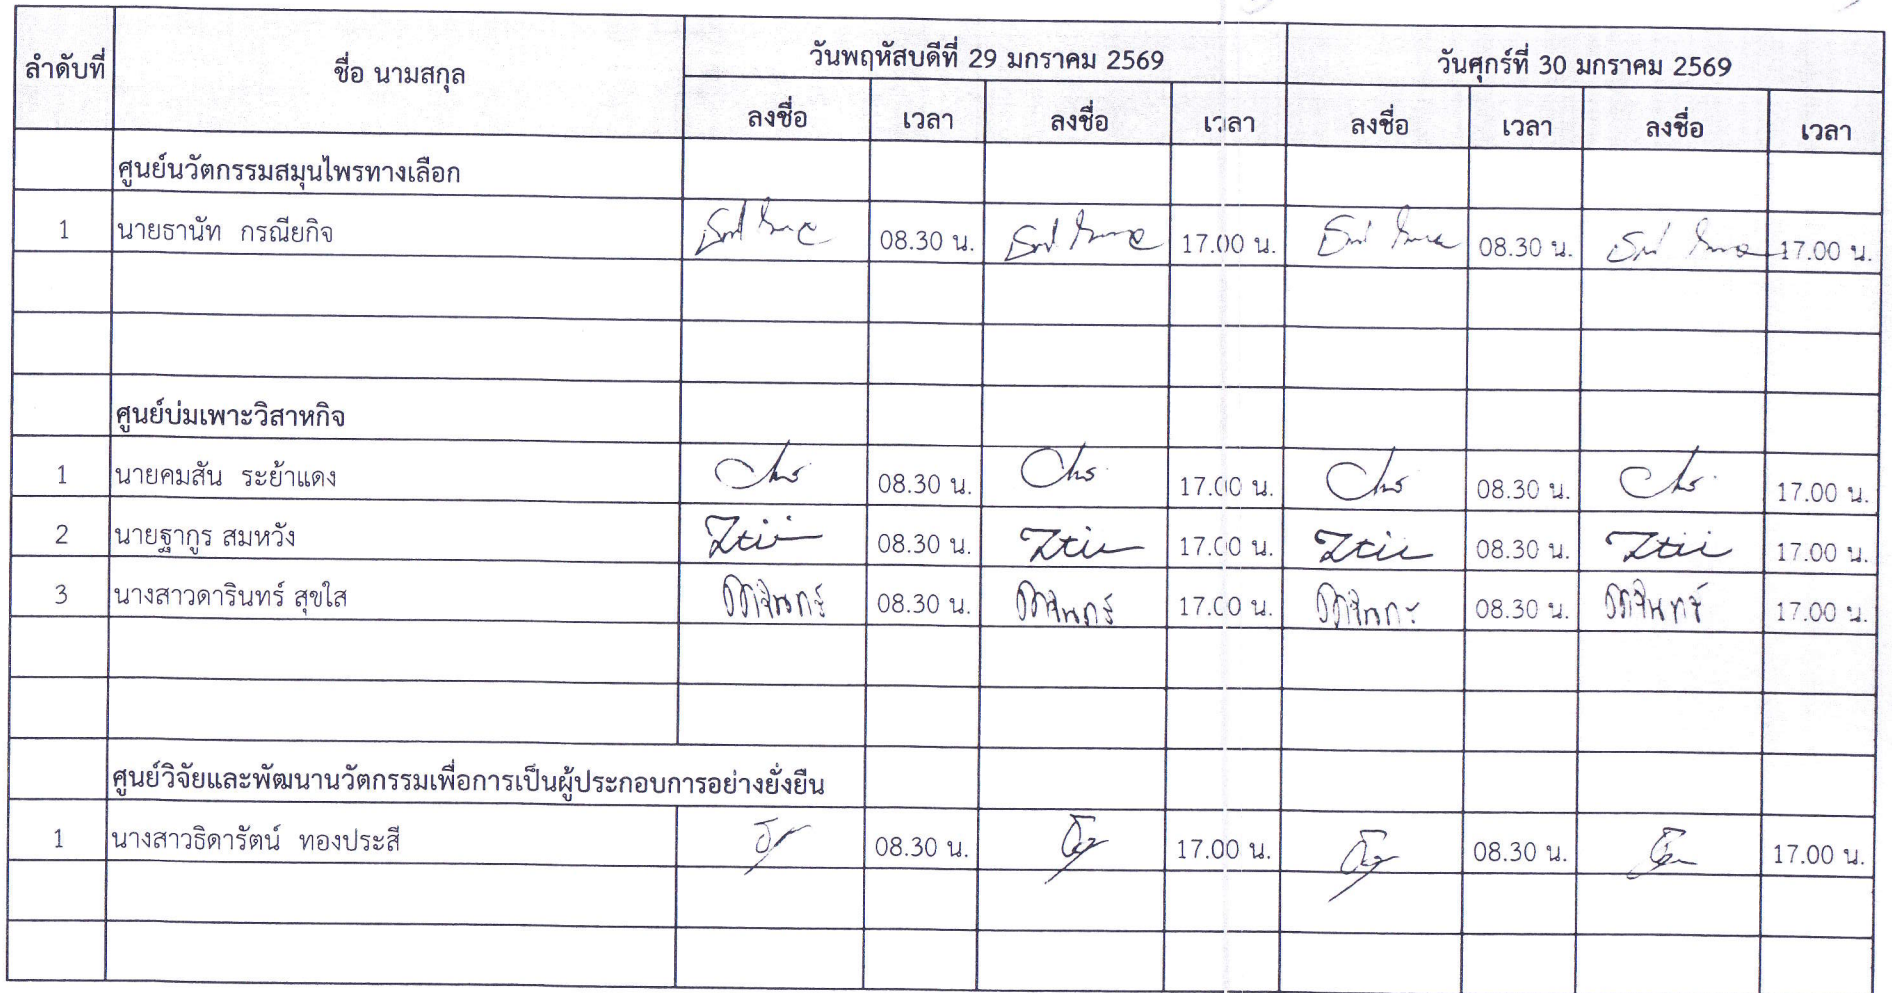 ลำดับที่ ชื่อ นามสกุล วันพฤหัสบดีที่ 29 มกราคม 2569 วันศุกร์ที่ 30 มกราคม 2569
ลงชื่อ เวลา ลงชื่อ เวลา ลงชื่อ เวลา ลงชื่อ เวลา
ศูนย์นวัตกรรมสมุนไพรทางเลือก
1 นายธานัท กรณียกิจ 08.30 น. 17.00 น. 08.30 น. 17.00 น.
ศูนย์บ่มเพาะวิสาหกิจ
1 นายคมสัน ระย้าแดง 08.30 น. 17.00 น. 08.30 น. 17.00 น.
2 นายฐากูร สมหวัง 08.30 น. 17.00 น. 08.30 น. 17.00 น.
3 นางสาวดารินทร์ สุขใส ดารินทร์ 08.30 น. ดารินทร์ 17.00 น. ดารินทร์ 08.30 น. ดารินทร์ 17.00 น.
ศูนย์วิจัยและพัฒนานวัตกรรมเพื่อการเป็นผู้ประกอบการอย่างยั่งยืน
1 นางสาวธิดารัตน์ ทองประสี 08.30 น. 17.00 น. 08.30 น. 17.00 น.